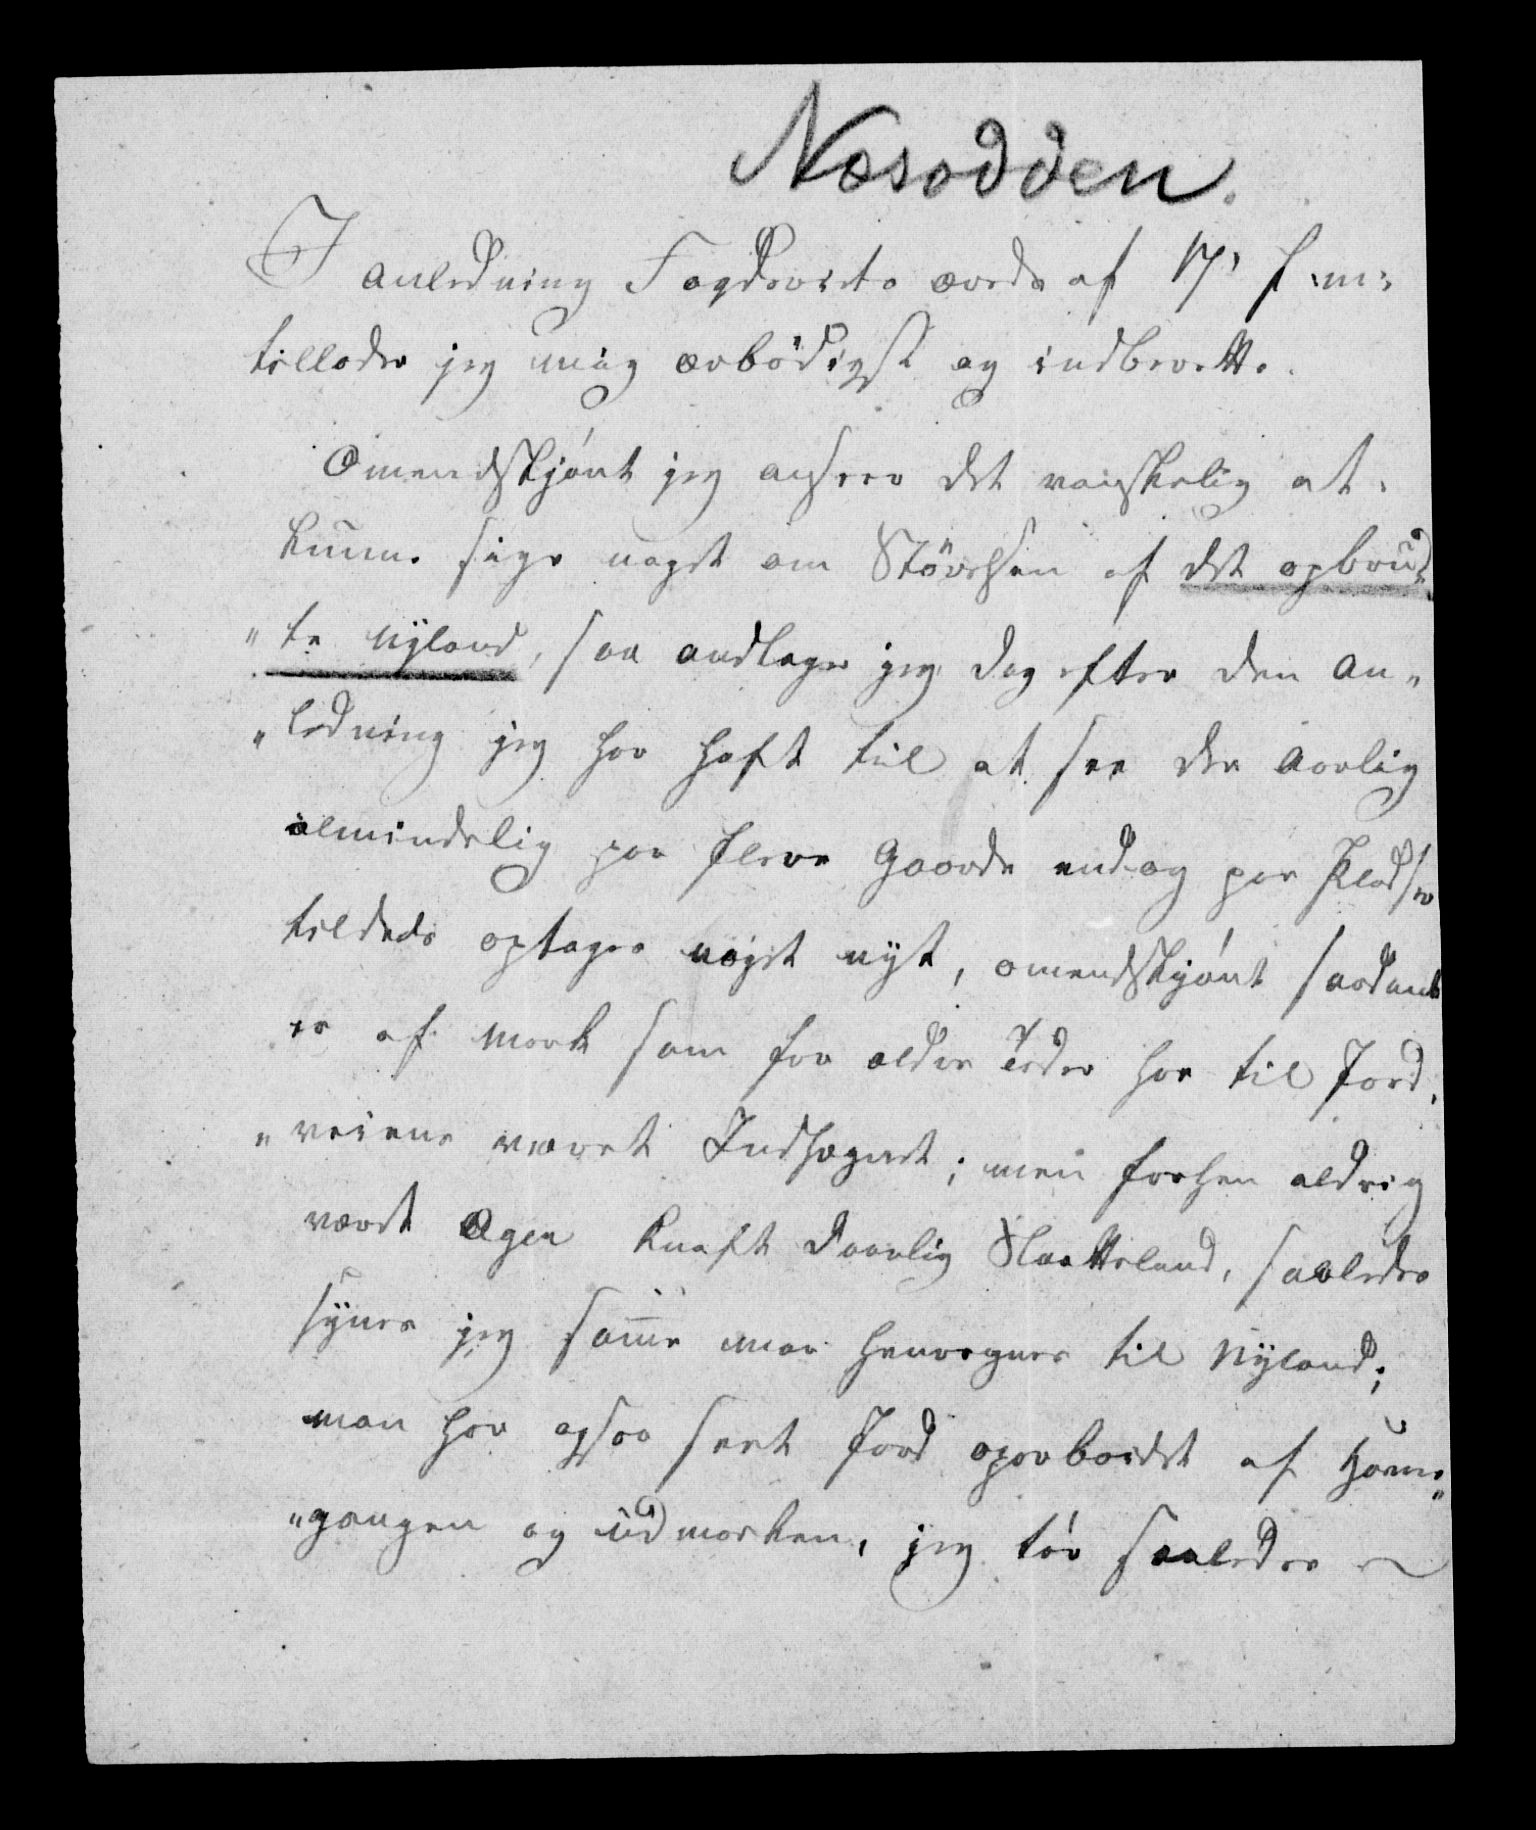 Næsodden.
I anledning Fogderiets ordre af 17' f:m:
tillader jeg mig ærbødigst og indberette.
Omendskjønt jeg anseer det vanskelig at
kunne sige noget om Störelsen af det opbrud„
„te Nyland, saa antager jeg dog efter den An„
„ledning jeg har haft til at see der Aarlig
almindelig paa flere Gaarde endog paa Pladser
tildeels optages noget nyt, omendskjønt saadant
er af Mark som fra ældre Tider har til Jord„
„veiene været Indhægnet; men forhen aldrig
været Ager knaft daarlig Slaatteland, saaledes
synes jeg samme maa henregnes til Nyland;
man har ogsaa seet Jord oparbeidet af Havne„
„gangen og Udmarken, jeg tør saaledes